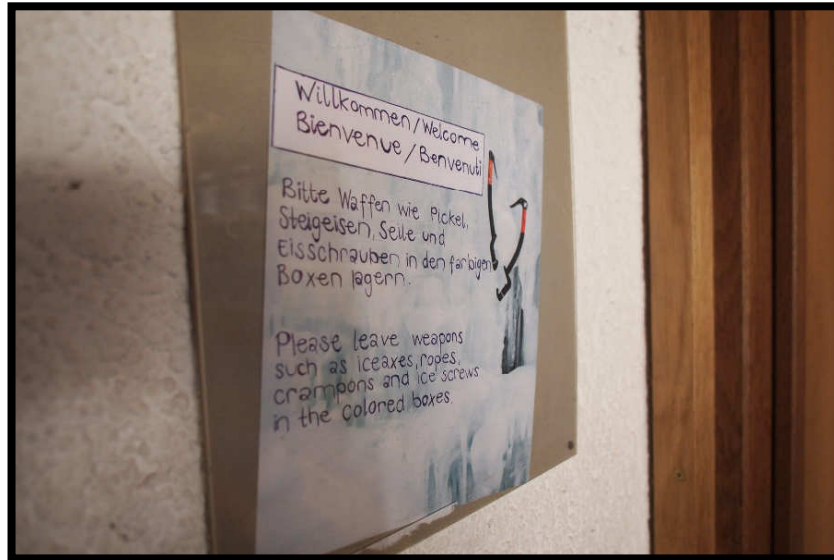 Willkommen/Welcome
Bienvenue/Benvenuti
Bitte Waffen wie Pickel,
Steigeisen, Seile und
Eisschrauben in den farbigen
Boxen lagern.
Please leave weapons
such as iceaxes, ropes,
crampons and ice screws
in the colored boxes.